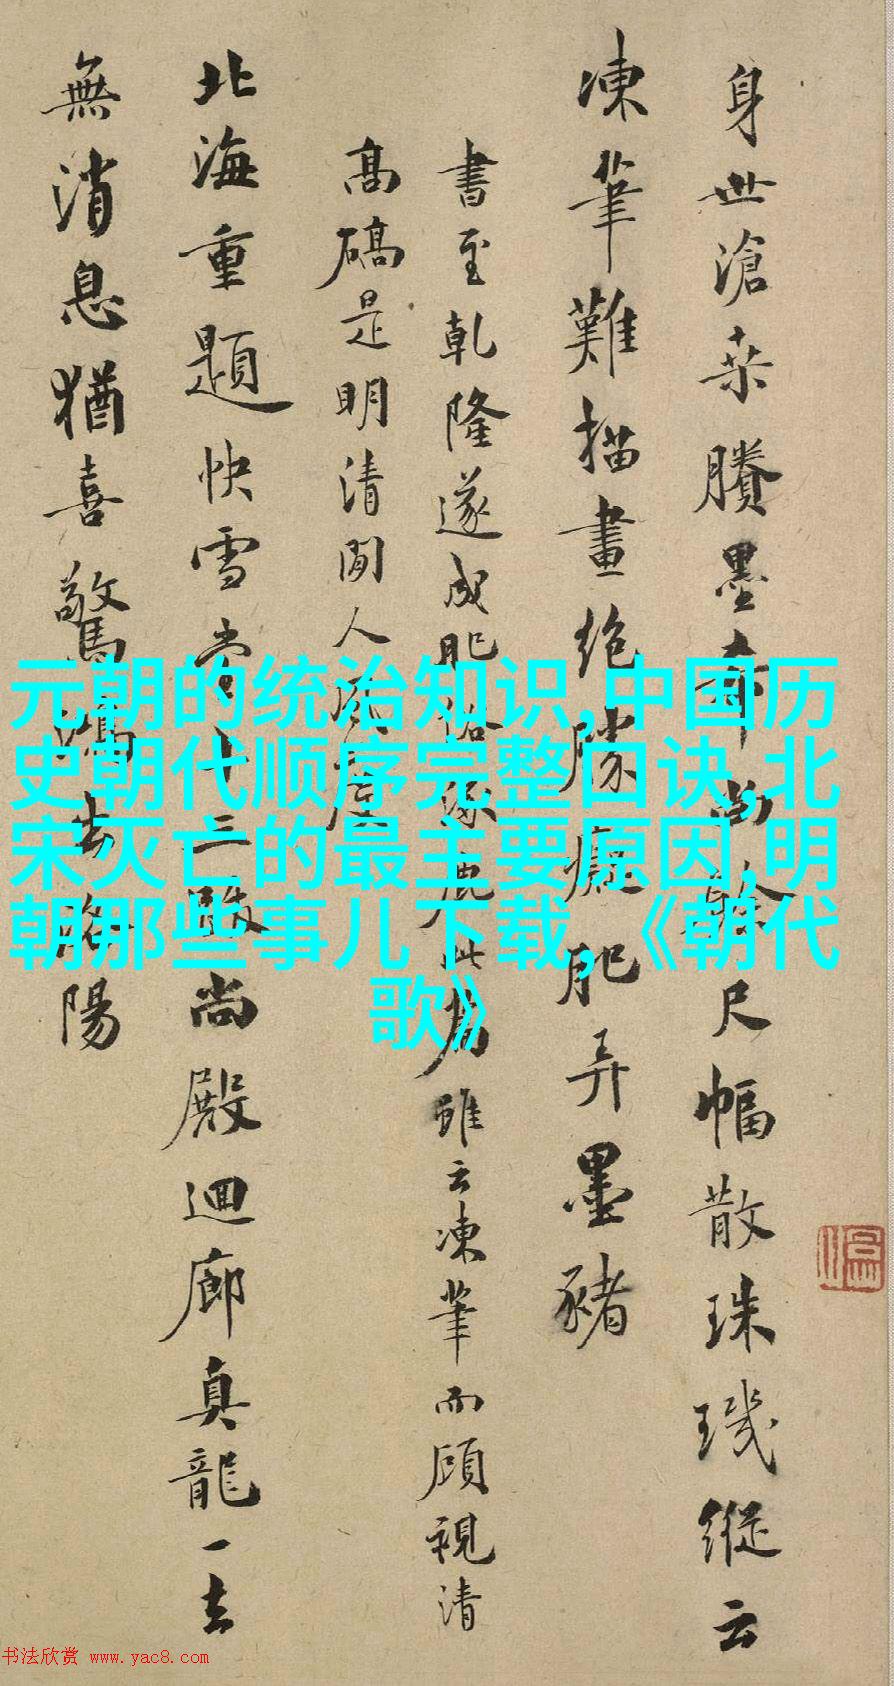 身世滄桑賸墨
尺幅散珠璣縱云
凍筆難描畫絶勝癡肥弄墨豬
書至乾隆遂成肥俗
此
雖云凍筆而顧視清
高碻是明清間人
北海重題快雪堂十三
尚
殿迴廊真龍一去
無消息猶喜驚鴻
陽
元朝的统治知识,中国历
史朝代顺序完整口诀,北
宋灭亡的最主要原因,明
朝那些事儿下载,《朝代
歌》
书法欣赏 www.yac8.com